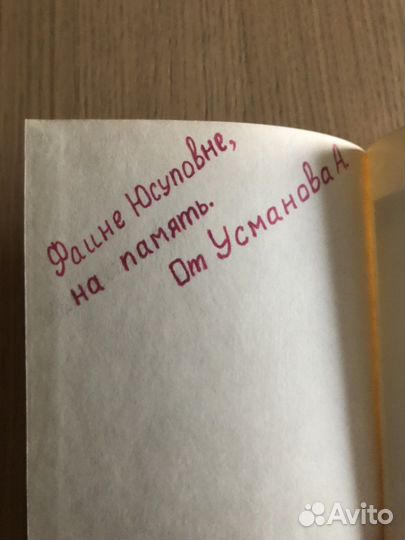 Фаине Юсуповне,
на память.
От Усманова А
Avito